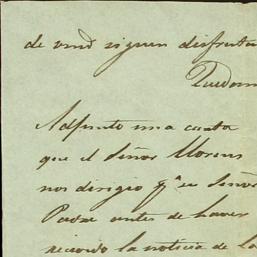 de vmd siguen disfruta
Quedam
Adjunto una carta
que el Señor Llorens
nos dirigio pª su Señor
Padre antes de haver
recivido la noticia de la